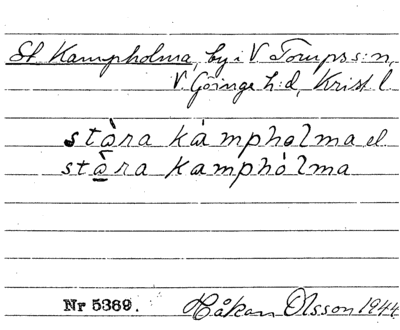 St Kampholma, by i V Torups s:n,
V. Göinge h:d, Krist l
stàra kámpholma el.
stàra kamphólma
Nr 5369. Håkan Olsson 1944